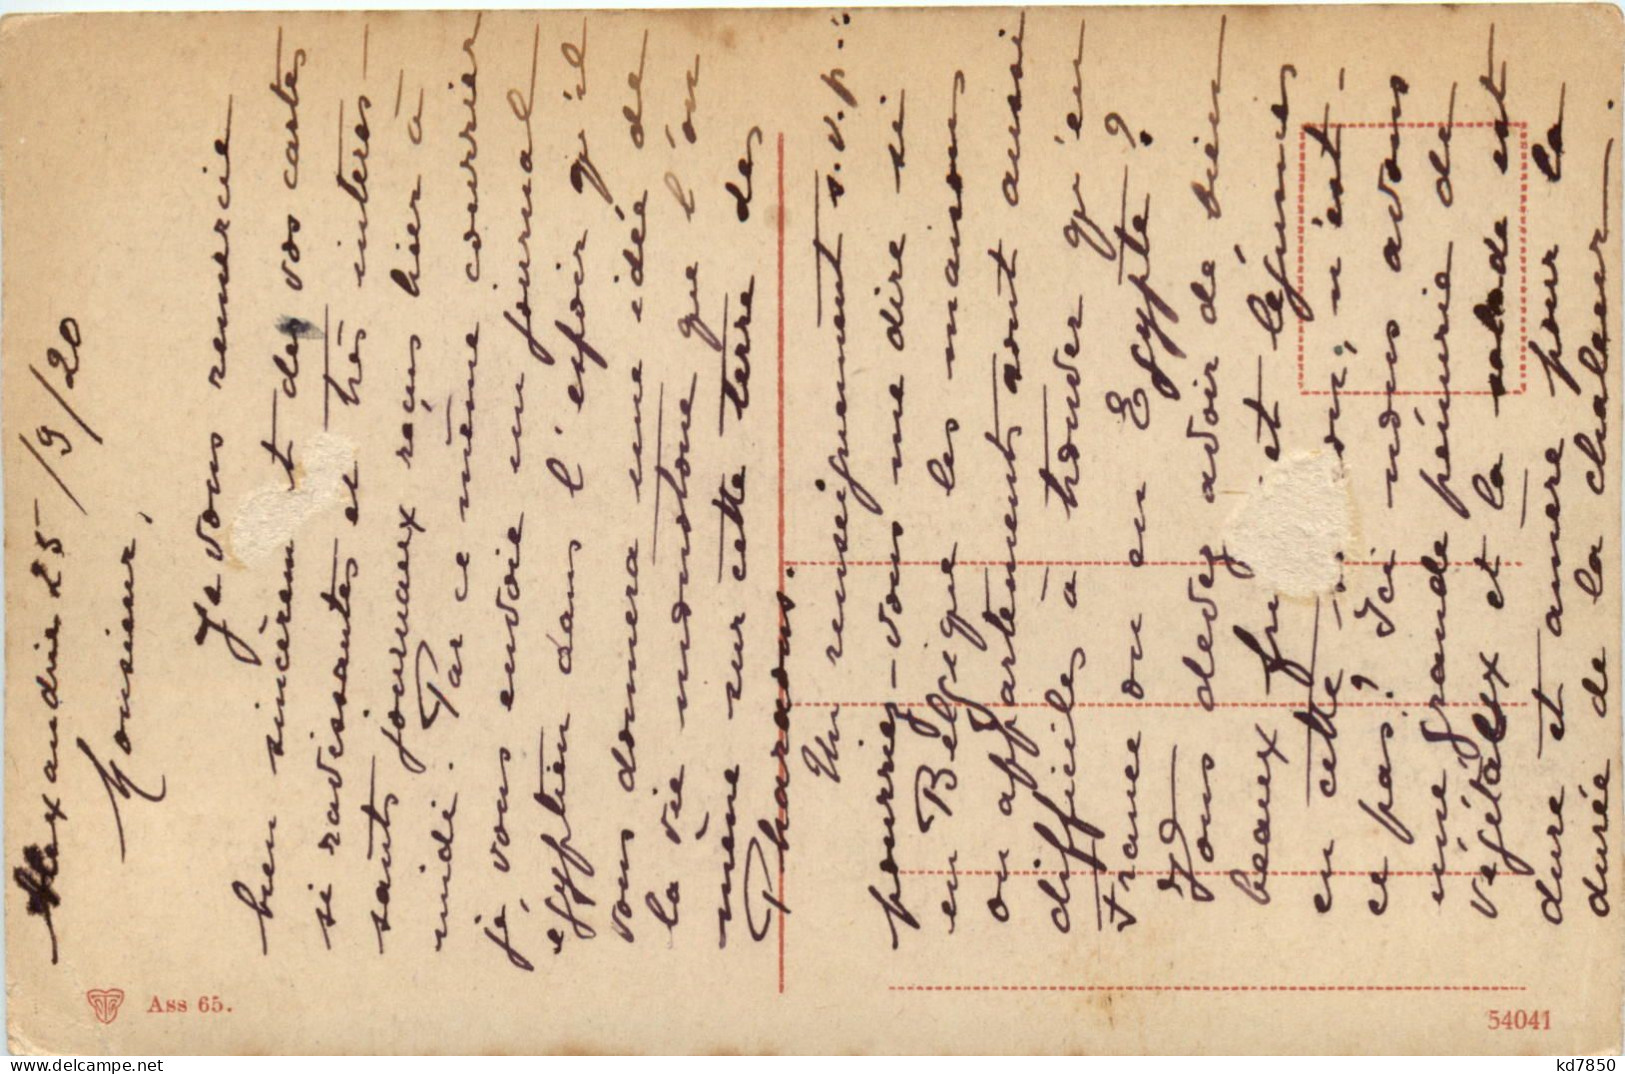 Alexandrie 25/9/20
Monsieur,
Je vous remercie
bien sincèrem t des vos cartes
si ravissantes et très intéres-
sants journaux reçus hier à
midi. Par ce même courrier
je vous envoie un journal
egyptien dans l'espoir qu'il
vous donnera une idée de
la vie monotone que l'on
mène sur cette terre des
Pharaons.
Un renseignement s.v.p.:
pourriez-vous me dire si
en Belgique les maisons
ou appartements sont aussi
difficiles à trouver qu'en
France ou en Egypte?
Vous devez avoir de bien
beaux fru et légumes
en cette son; n'est-
ce pas? Ici nous avons
une grande pénurie de
végétalex et la salade est
dure et amère pour la
durée de la chaleur.
Ass 65.
54041
kd7850